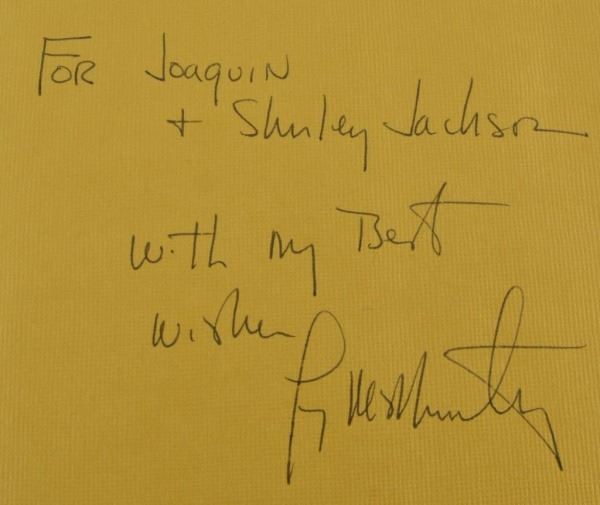 FOR Joaquin
+ Shirley Jackson
with my Best
wishes
Larry McMurtry